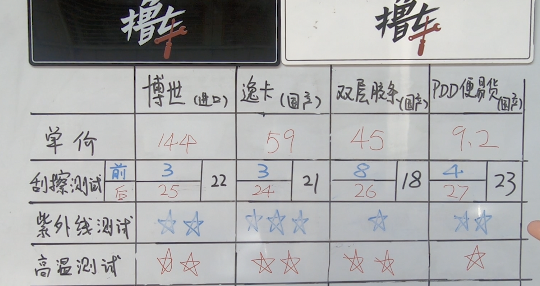 撸卡 撸卡
博世(进口) 逸卡(国产) 双层胶条(国产) PDD便易货(国产)
单价 144 59 45 9.2
刮擦测试 前 3 22 3 21 8 18 4 23
后 25 24 26 27
紫外线测试 ☆☆ ☆☆☆ ☆ ☆☆
高温测试 ☆☆ ☆☆ ☆☆ ☆